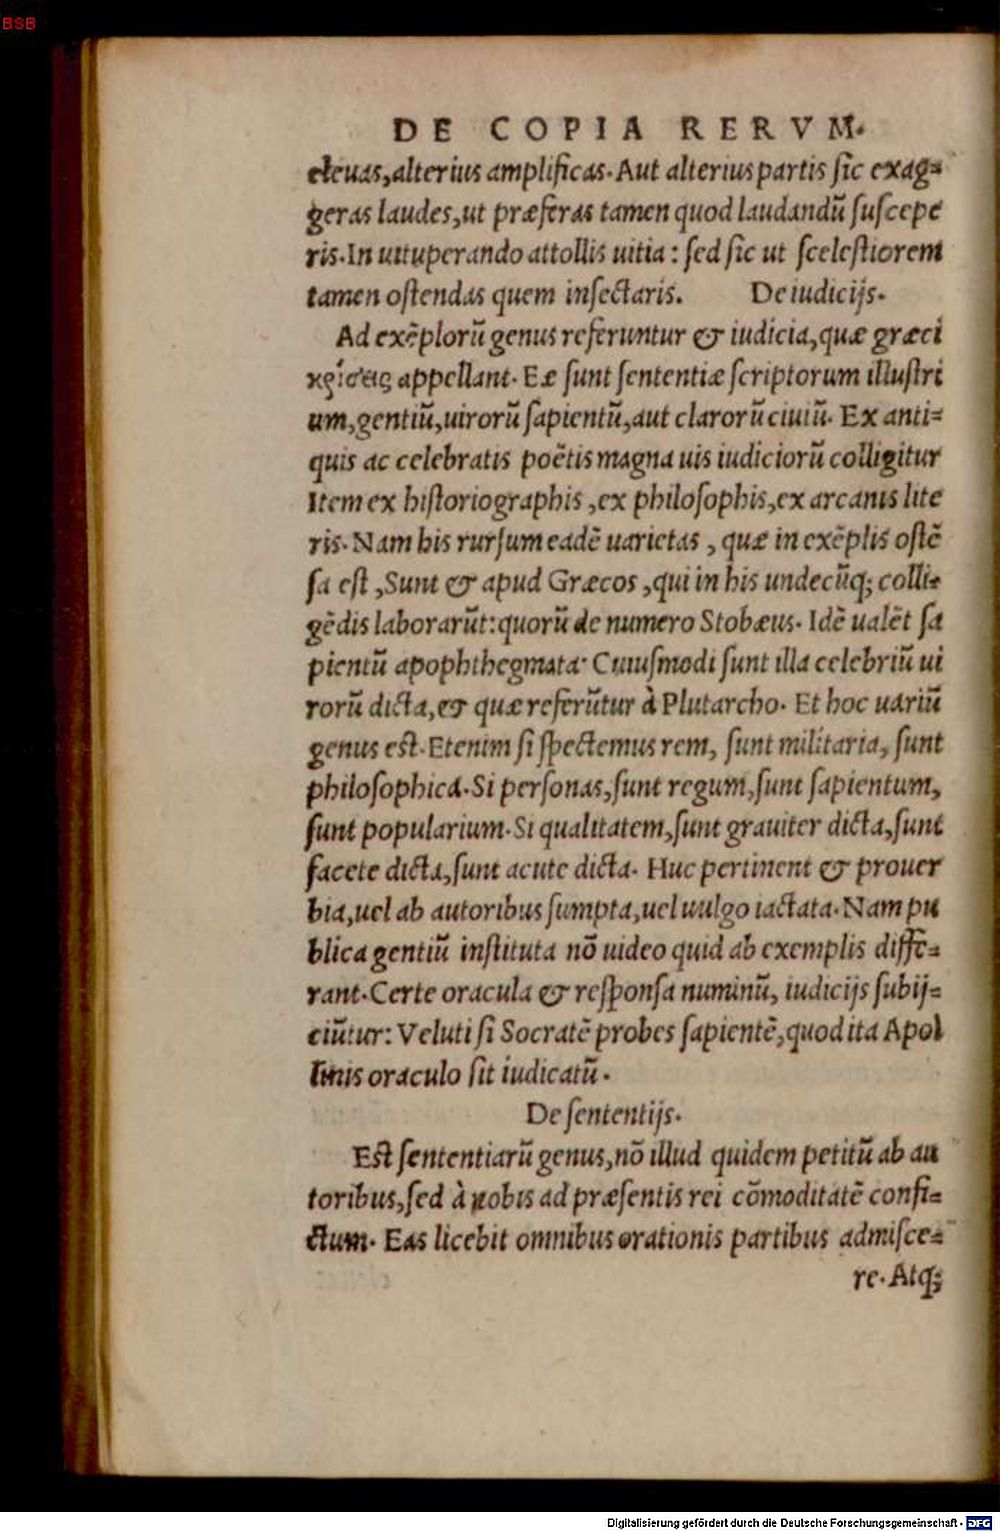 BSB
DE COPIA RERVM.
eleuas,alterius amplificas. Aut alterius partis ſic exag=
geras laudes,ut præferas tamen quod laudandū ſuſcepe
ris. In uituperando attollis uitia : ſed ſic ut ſceleſtiorem
tamen oſtendas quem inſectaris. De iudicijs.
Ad exēplorū genus referuntur & iudicia,quæ græci
κρίσεις appellant. Eæ ſunt ſententiæ ſcriptorum illuſtri
um,gentiū,uirorū ſapientū,aut clarorū ciuiū. Ex anti=
quis ac celebratis poētis magna uis iudiciorū colligitur
Item ex hiſtoriographis ,ex philoſophis,ex arcanis lite
ris. Nam his rurſum eadē uarietas , quæ in exēplis oſtē
ſa eſt ,Sunt & apud Græcos ,qui in his undecūq; colli=
gēdis laborarūt:quorū de numero Stobæus. Idē ualēt ſa
pientū apophthegmata· Cuiuſmodi ſunt illa celebriū ui
rorū dicta,& quæ referūtur à Plutarcho. Et hoc uariū
genus eſt. Etenim ſi ſpectemus rem, ſunt militaria, ſunt
philoſophica. Si perſonas,ſunt regum,ſunt ſapientum,
ſunt popularium. Si qualitatem,ſunt grauiter dicta,ſunt
facete dicta,ſunt acute dicta. Huc pertinent & prouer
bia,uel ab autoribus ſumpta,uel uulgo iactata. Nam pu
blica gentiū inſtituta nō uideo quid ab exemplis diffe=
rant. Certe oracula & reſponſa numinū, iudicijs ſubij=
ciūtur: Veluti ſi Socratē probes ſapientē,quod ita Apol
linis oraculo ſit iudicatū.
De ſententijs.
Eſt ſententiarū genus,nō illud quidem petitū ab au
toribus,ſed à nobis ad præſentis rei cōmoditatē confi=
ctum. Eas licebit omnibus orationis partibus admiſce=
re. Atq;
Digitalisierung gefördert durch die Deutsche Forschungsgemeinschaft - DFG